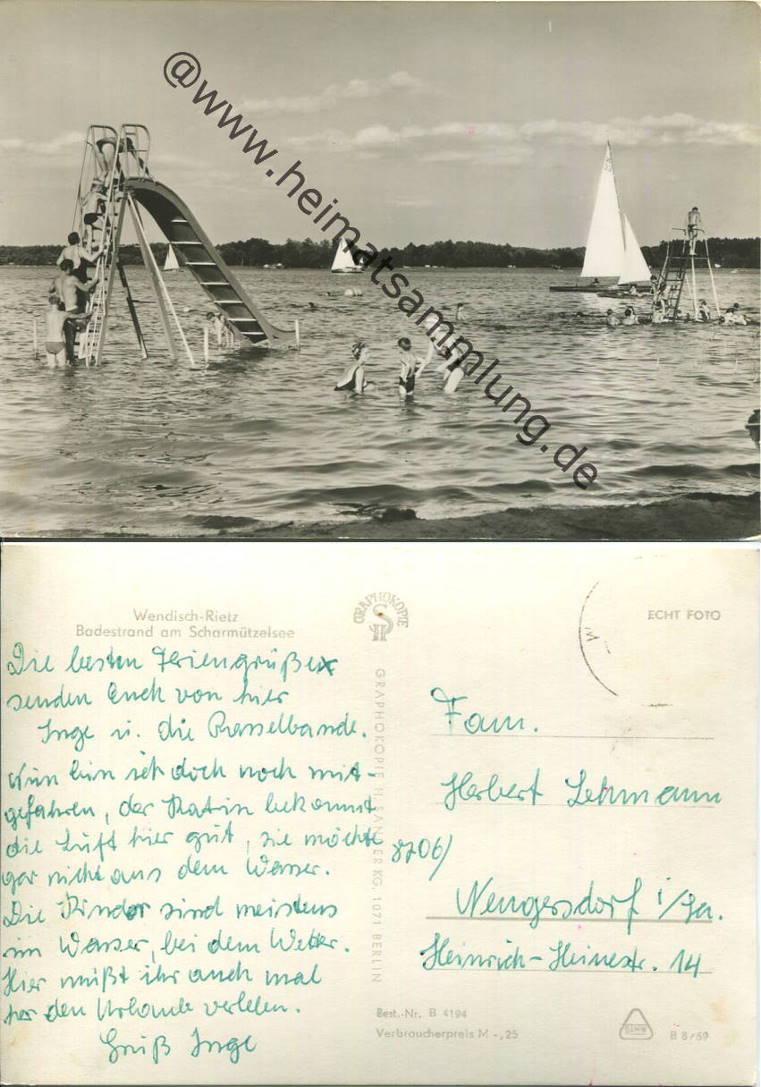 @www.heimatsammlung.de
Wendisch-Rietz
Badestrand am Scharmützelsee
GRAPHOKOPIE
ECHT FOTO
Die besten Feriengrüße
senden Euch von hier
Inge u. die Rasselbande.
Nun bin ich doch noch mit-
gefahren, der Katrin bekommt
die Luft hier gut, sie möchte
gar nicht aus dem Wasser.
Die Kinder sind meistens
im Wasser, bei dem Wetter.
Hier müßt ihr auch mal
her den Urlaub verleben.
Gruß Inge
GRAPHOKOPIE H. SANDER KG, 1071 BERLIN
Fam.
Herbert Lehmann
8706/
Neugersdorf i/Sa.
Heinrich-Heinestr. 14
Best.-Nr. B 4194
Verbraucherpreis M -,25
B 8/69